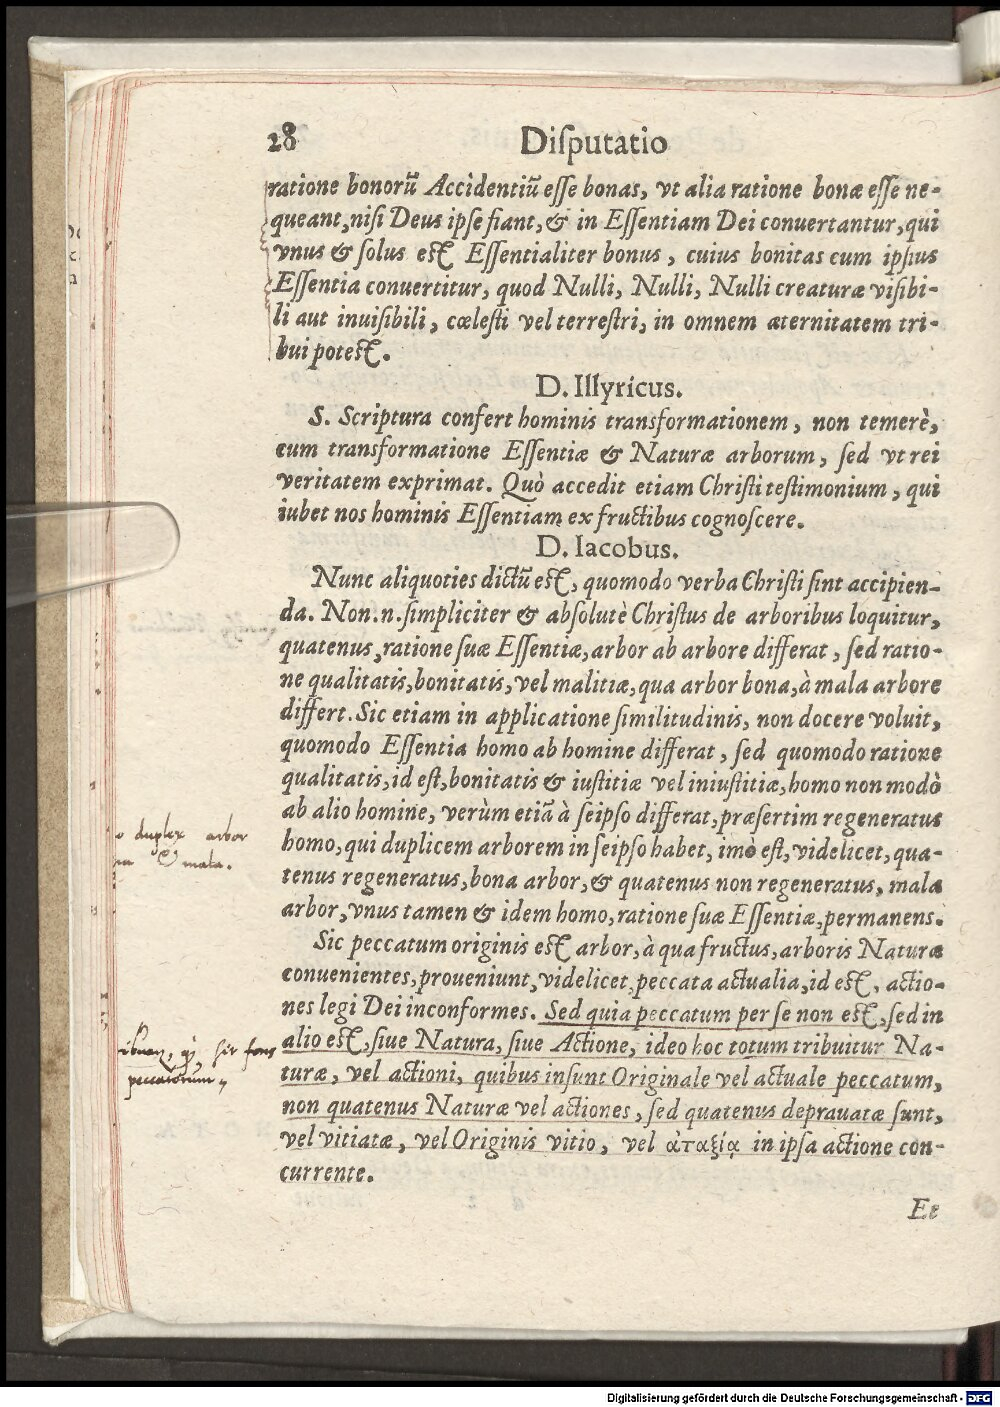 28
Disputatio
ratione bonorū Accidentiū esse bonas, vt alia ratione bonæ esse ne-
queant, nisi Deus ipse fiant, & in Essentiam Dei conuertantur, qui
vnus & solus est Essentialiter bonus, cuius bonitas cum ipsius
Essentia conuertitur, quod Nulli, Nulli, Nulli creaturæ visibi-
li aut inuisibili, cœlesti vel terrestri, in omnem æternitatem tri-
bui potest.
D. Illyricus.
S. Scriptura confert hominis transformationem, non temerè,
cum transformatione Essentiæ & Naturæ arborum, sed vt rei
veritatem exprimat. Quò accedit etiam Christi testimonium, qui
iubet nos hominis Essentiam ex fructibus cognoscere.
D. Iacobus.
Nunc aliquoties dictū est, quomodo verba Christi sint accipien-
da. Non.n.simpliciter & absolutè Christus de arboribus loquitur,
quatenus, ratione suæ Essentiæ, arbor ab arbore differat, sed ratio-
ne qualitatis, bonitatis, vel malitiæ, qua arbor bona, à mala arbore
differt. Sic etiam in applicatione similitudinis, non docere voluit,
quomodo Essentia homo ab homine differat, sed quomodo ratione
qualitatis, id est, bonitatis & iustitiæ vel iniustitiæ, homo non modò
ab alio homine, verùm etiā à seipso differat, præsertim regeneratus
homo, qui duplicem arborem in seipso habet, imò est, videlicet, qua-
tenus regeneratus, bona arbor, & quatenus non regeneratus, mala
arbor, vnus tamen & idem homo, ratione suæ Essentiæ, permanens.
duplex arbor
mala.
Sic peccatum originis est arbor, à qua fructus, arboris Naturæ
conuenientes, proueniunt, videlicet, peccata actualia, id est, actio-
nes legi Dei inconformes. Sed quia peccatum per se non est, sed in
alio est, siue Natura, siue Actione, ideo hoc totum tribuitur Na-
turæ, vel actioni, quibus insunt Originale vel actuale peccatum,
non quatenus Naturæ vel actiones, sed quatenus deprauatæ sunt,
vel vitiatæ, vel Originis vitio, vel ἀταξίᾳ in ipsa actione con-
currente.
peccatorum
Et
Digitalisierung gefördert durch die Deutsche Forschungsgemeinschaft - DFG